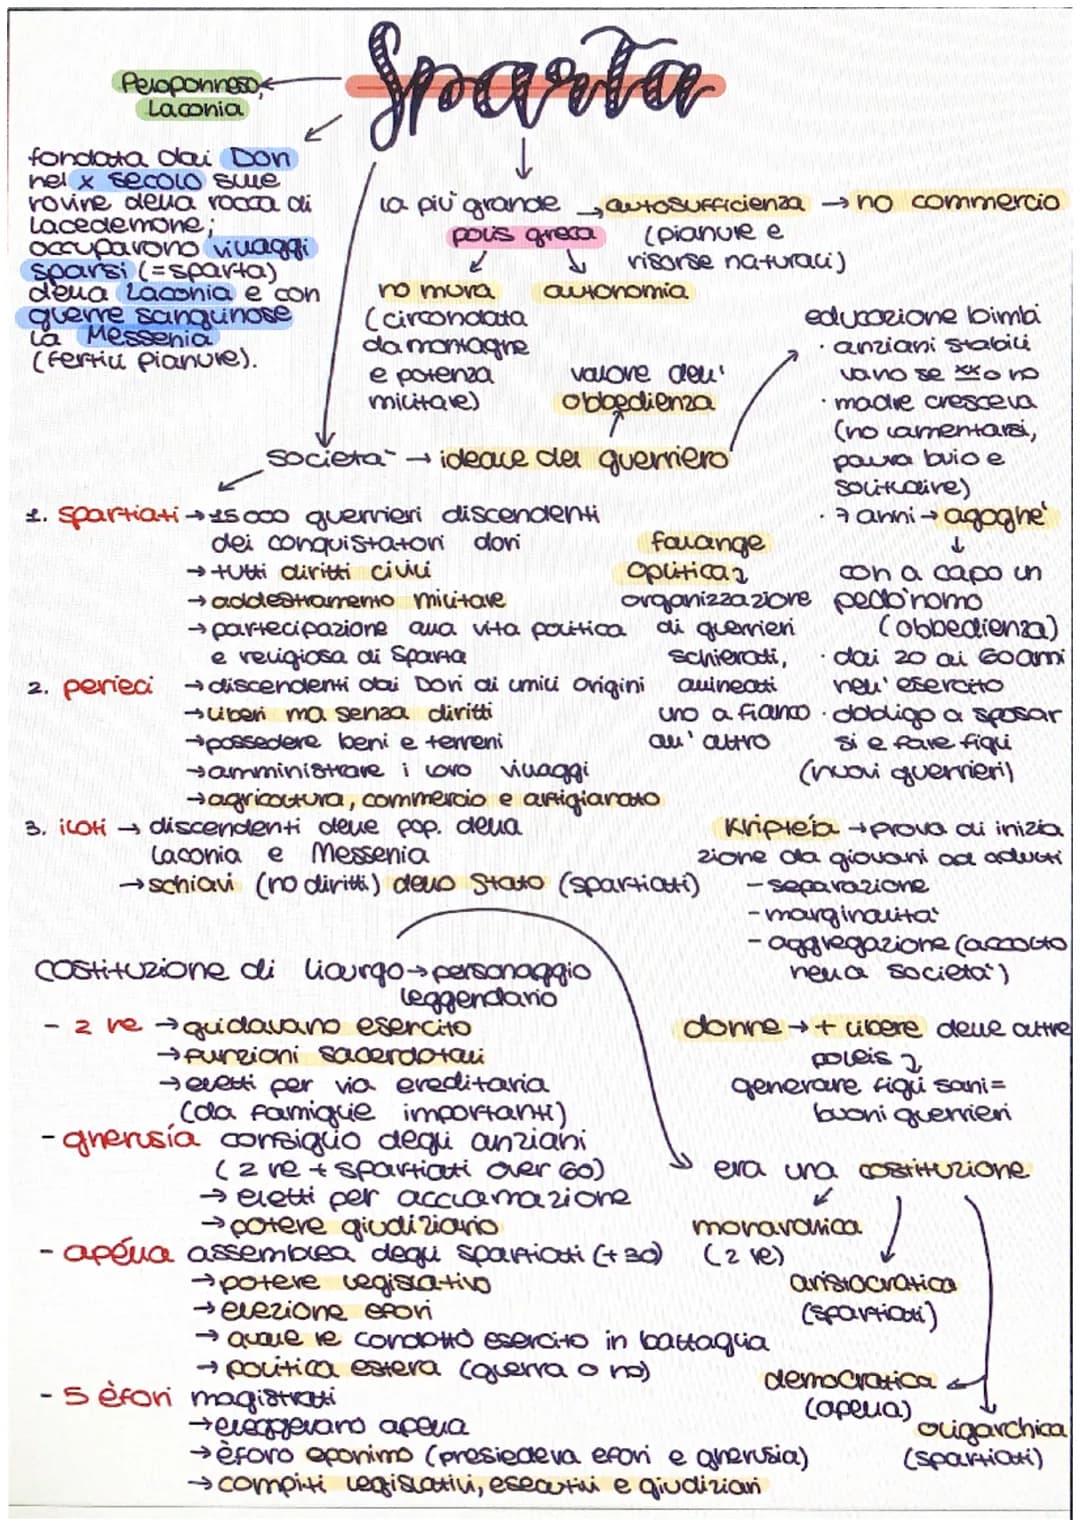 Sparta
Peloponneso,
Laconia
fondata dai Dori
nel X secolo sulle
rovine della rocca di
Lacedemone;
occuparono villaggi
sparsi (=sparta)
della Laconia e con
guerre sanguinose
la Messenia
(fertili pianure).
la più grande
polis greca
→ autosufficienza → no commercio
(pianure e
risorse naturali)
no mura
(circondata
da montagne
e potenza
militare)
autonomia
valore dell'
obbedienza
società → ideale del guerriero
educazione bimbi
· anziani stabili
vano se xx o no
· madre cresceva
(no lamentarsi,
paura buio e
solitudine)
· 7 anni → agoghè
↓
con a capo un
pedònomo
(obbedienza)
· dai 20 ai 60 anni
nell'esercito
· obbligo a sposar
si e fare figli
(nuovi guerrieri)
1. spartiati → 15 000 guerrieri discendenti
dei conquistatori dori
→ tutti diritti civili
→ addestramento militare
→ partecipazione alla vita politica
e religiosa di Sparta
falange
oplitica
organizzazione
di guerrieri
schierati,
allineati
uno a fianco
all'altro
2. perieci → discendenti dai Dori di umili origini
→ liberi ma senza diritti
→ possedere beni e terreni
→ amministrare i loro villaggi
→ agricoltura, commercio e artigianato
3. iloti → discendenti delle pop. della
Laconia e Messenia
→ schiavi (no diritti) dello Stato (spartiati)
Kripteia → prova di inizia
zione da giovani ad adulti
- separazione
- marginalità
- aggregazione (accolto
nella società)
costituzione di Licurgo → personaggio
leggendario
- 2 re → guidavano esercito
→ funzioni sacerdotali
→ eletti per via ereditaria
(da famiglie importanti)
- gherusía consiglio degli anziani
(2 re + spartiati over 60)
→ eletti per acclamazione
→ potere giudiziario
- apélla assemblea degli spartiati (+30)
→ potere legislativo
→ elezione efori
→ quale re condotto esercito in battaglia
→ politica estera (guerra o no)
- 5 èfori magistrati
→ eleggevano apella
→ èforo eponimo (presiedeva efori e gherusia)
→ compiti legislativi, esecutivi e giudiziari
donne → + libere delle altre
poleis
generare figli sani =
buoni guerrieri
era una costituzione
monarchica
(2 re)
aristocratica
(spartiati)
democratica
(apella)
oligarchica
(spartiati)